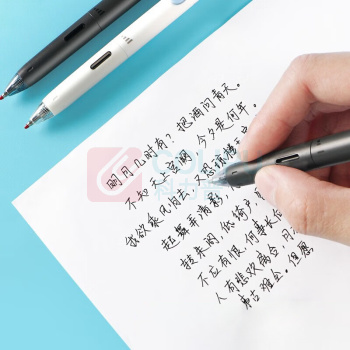 明月几时有？把酒问青天。
不知天上宫阙，今夕是何年。
我欲乘风归去，恐琼楼
起舞弄清影
转朱阁，低绮户，
不应有恨，何事长
人有悲欢离合，月
事古难全。但愿